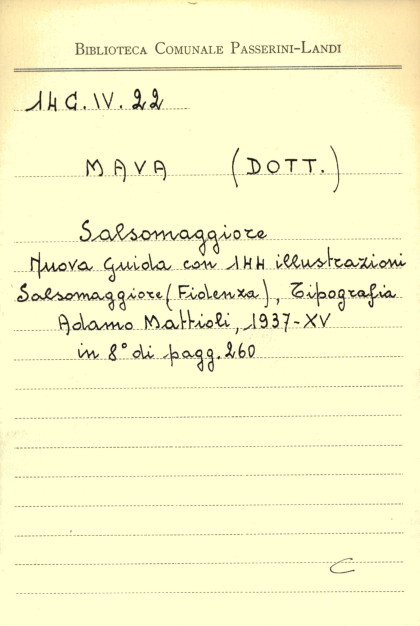 BIBLIOTECA COMUNALE PASSERINI-LANDI
14 C. IV. 22
MAVA (DOTT.)
Salsomaggiore
Nuova Guida con 144 illustrazioni
Salsomaggiore (Fidenza), Tipografia
Adamo Mattioli, 1937-XV
in 8° di pagg. 260
C